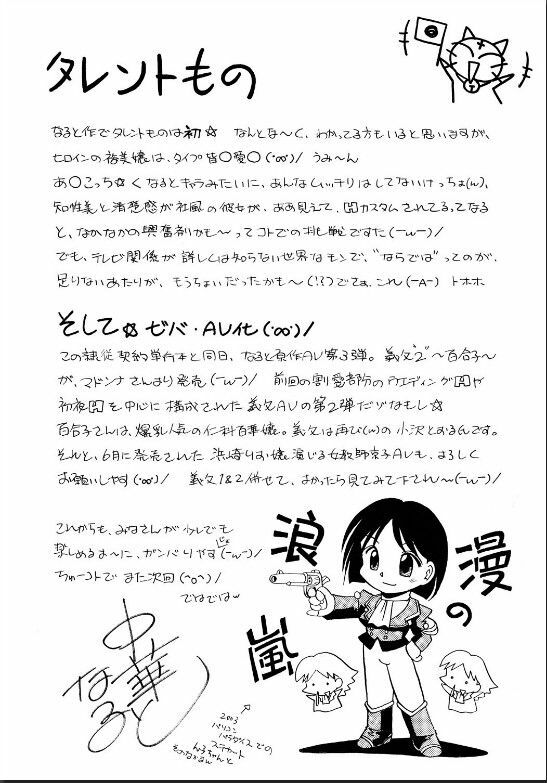 タレントもの
なると作でタレントものは初☆　なんとな〜く、わかってる方もいると思いますが、
ヒロインの裕美嬢は、タイプ皆〇愛〇(・∞・)/ うみ〜ん
あ〇こっち☆くなるとキャラみたいに、あんなムッチリはしてないけっちょ(w)、
知性美と清楚感が社風の彼女が、ああ見えて、凹カスタムされてるってなる
と、なかなかの興奮剤かも〜ってコトでの挑戦ですた(ーωー)/
でも、テレビ関係が詳しくは知らない世界なモンで、"ならでは"ってのが、
足りないあたりが、もうちょいだったかも〜(!?)でてぁ、これ(ーAー) トホホ
そして☆ゼバ・AV化(・∞・)/
この隷従契約単行本と同日、なると原作AV第3弾。義父2〜百合子〜
が、マドンナさんより発売(ーωー)/　前回の割愛部のウエディング凹や
初夜凹を中心に構成された義父AVの第2弾だゾなもし☆
百合子さんは、爆乳人気の仁科百華嬢。義父は再び(w)の小沢とおるんです。
それと、6月に発売された浜崎りお嬢演じる女教師京子AVも、よろしく
お願いしやす(・∞・)/　義父1&2併せて、よかったら見てみて下さん〜(ーωー)/
これからも、みなさんが少しでも
楽しめるよーに、ガンバりやす(ーωー)/
ちゅーコトでまた次回(^o^)/
ではではw
浪漫の嵐
中華なると
2003
での
スケカット
んるちゃんと